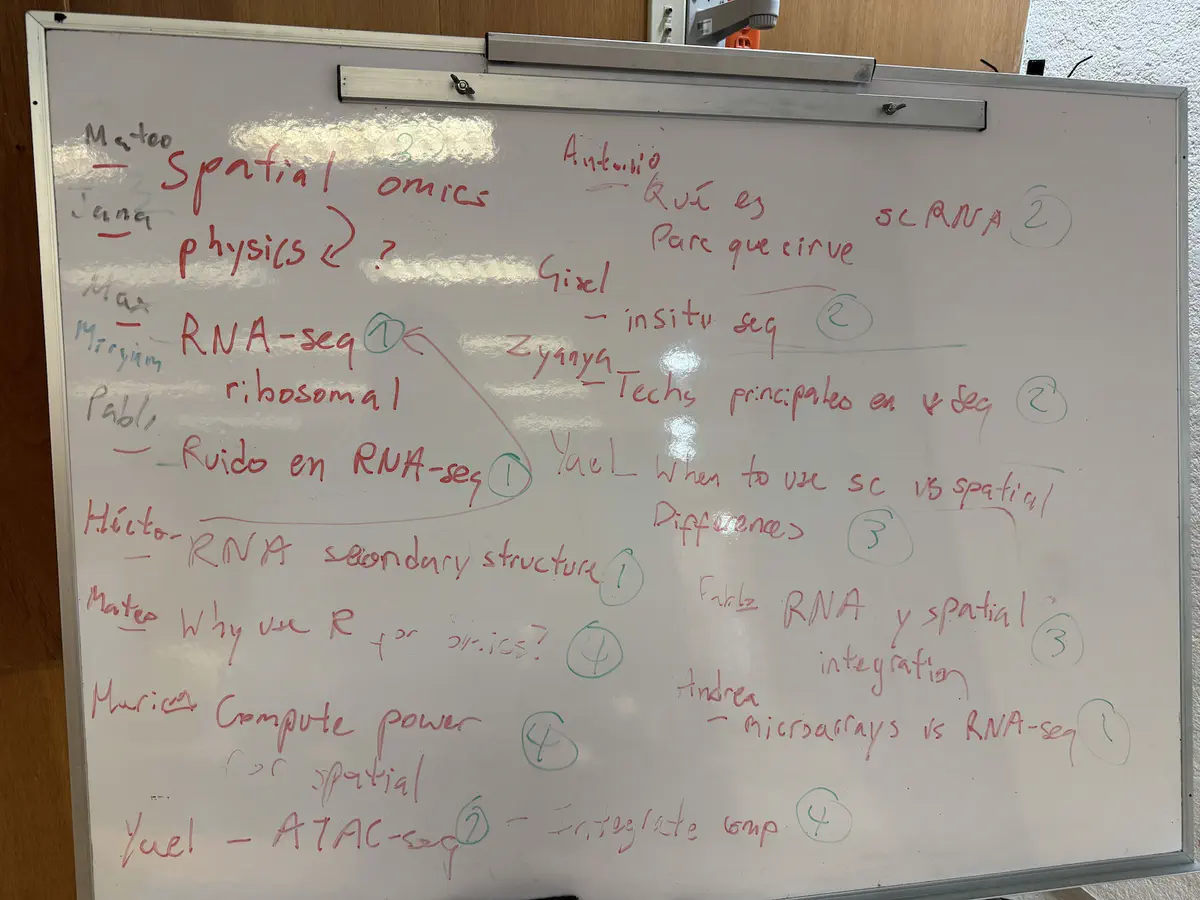 Mateo
Spatial omics 3
Jana
physics ?
Max
Miryam
RNA-seq 1
ribosomal
Pablo
Ruido en RNA-seq 1
Héctor
RNA secondary structure 1
Mateo Why use R for omics? 4
Compute power 4
for spatial
Yael - ATAC-seq 2 - Integrate comp 4
Antonio
Qué es scRNA 2
Para que cirve
Gisel
- insitu seq 2
Zyanya
- Techs principales en seq 2
Yael When to use sc vs spatial
Differences 3
RNA y spatial 3
integration
Andrea
- microarrays vs RNA-seq 1